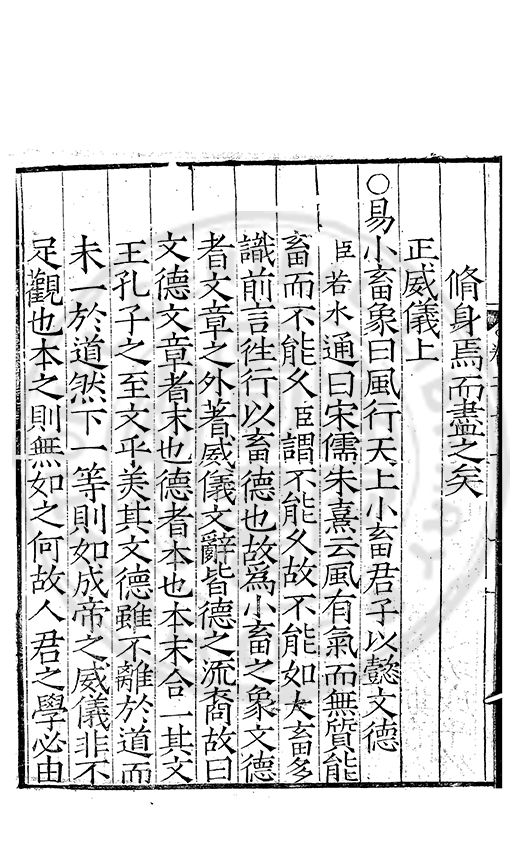 脩身焉而盡之矣
正威儀上
○易小畜象曰風行天上小畜君子以懿文德
臣若水通曰宋儒朱熹云風有氣而無質能
畜而不能久臣謂不能久故不能如大畜多
識前言徃行以畜德也故為小畜之象文德
者文章之外著威儀文辭皆德之流裔故曰
文德文章者末也德者本也本末合一其文
王孔子之至文乎美其文德雖不離於道而
未一於道然下一等則如成帝之威儀非不
足觀也本之則無如之何故人君之學必由